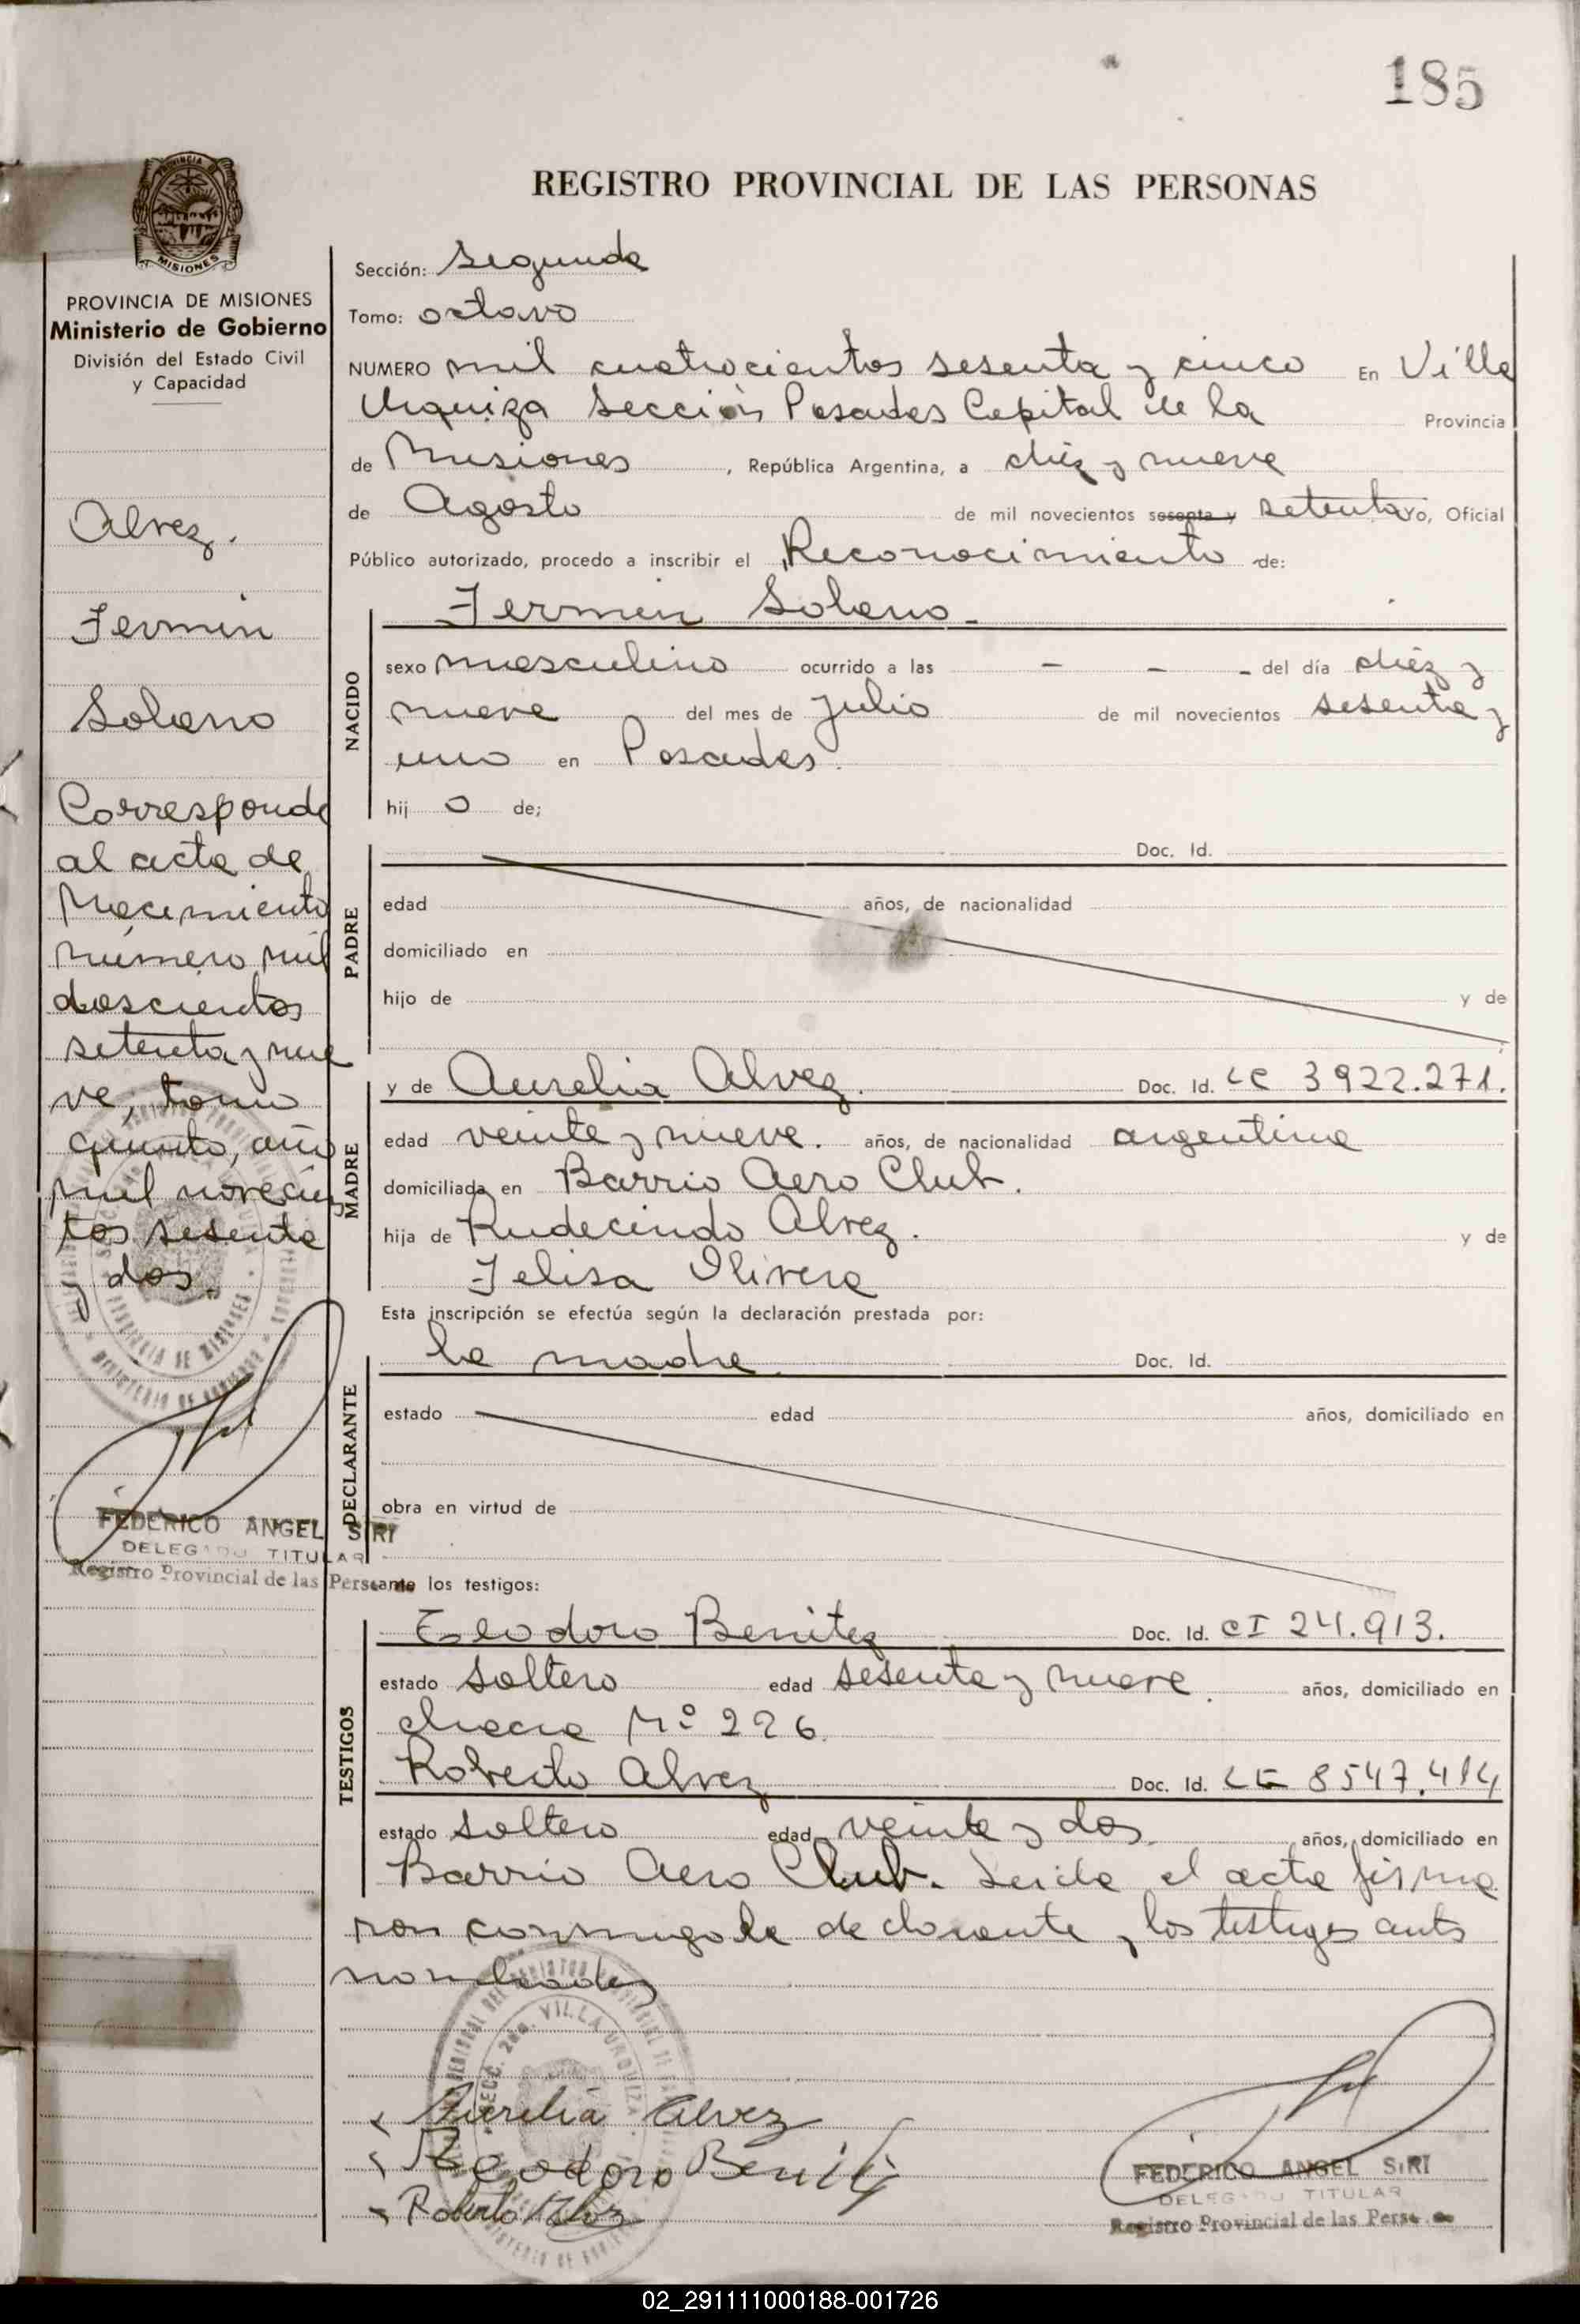 185
REGISTRO PROVINCIAL DE LAS PERSONAS
MISIONES
PROVINCIA DE MISIONES
Ministerio de Gobierno
División del Estado Civil
y Capacidad
Alvez.
Fermin
Solano
Corresponde
al acta de
Nacimiento
número mil
doscientos
setenta y nue
ve, tomo
quinto, año
mil novecien
tos sesenta
y dos.
FEDERICO ANGEL SIRI
DELEGADO TITULAR
Registro Provincial de las Personas
Sección: Segunda
Tomo: octavo
NUMERO mil cuatrocientos sesenta y cinco En Villa
Urquiza Sección Posadas Capital de la Provincia
de Misiones, República Argentina, a diez y nueve
de Agosto de mil novecientos sesenta y setenta yo, Oficial
Público autorizado, procedo a inscribir el Reconocimiento de:
NACIDO
Fermin Solano.
sexo masculino ocurrido a las - - - del día diez y
nueve del mes de Julio de mil novecientos sesenta y
uno en Posadas.
hij o de;
PADRE
Doc. Id.
edad años, de nacionalidad
domiciliado en
hijo de y de
MADRE
y de Aurelia Alvez. Doc. Id. LC 3922.271.
edad veinte y nueve. años, de nacionalidad argentina
domiciliada en Barrio Aero Club.
hija de Rudecindo Alvez. y de
Felisa Olivera
Esta inscripción se efectúa según la declaración prestada por:
DECLARANTE
la madre. Doc. Id.
estado edad años, domiciliado en
obra en virtud de
ante los testigos:
TESTIGOS
Teodoro Benitez Doc. Id. CI 24.913.
estado soltero edad sesenta y nueve. años, domiciliado en
chacra Nº 226.
Roberto Alvez Doc. Id. LE 8547.414
estado soltero edad veinte y dos años, domiciliado en
Barrio Aero Club. Leida el acta firma
ron conmigo la declarante y los testigos ants
nombrados
SECC. 2da. VILLA URQUIZA
Aurelia Alvez
Teodoro Benitez
Roberto Alvez
FEDERICO ANGEL SIRI
DELEGADO TITULAR
Registro Provincial de las Personas
02_291111000188-001726